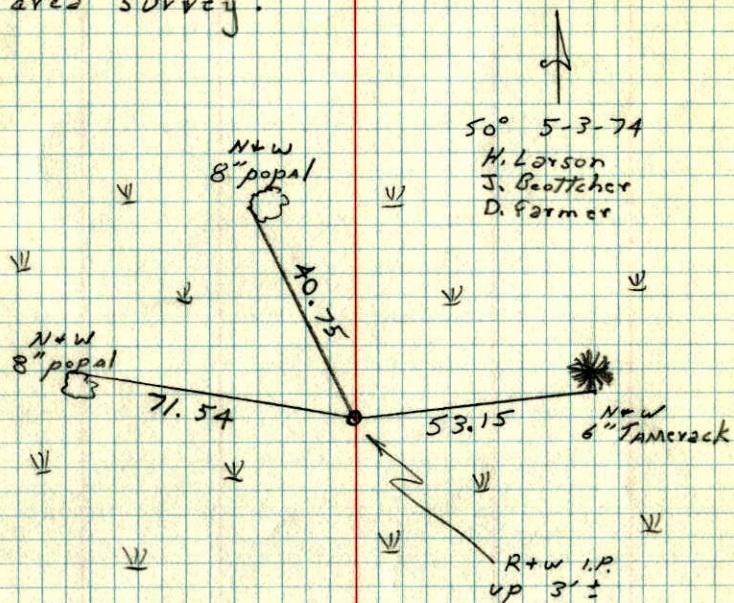 area survey.
50° 5-3-74
H. Larson
J. Beottcher
D. Farmer
N+W
8" popal
40.75
N+W
8" popal
71.54
53.15
N+W
6" TAMerack
R+W I.P.
up 3' ±